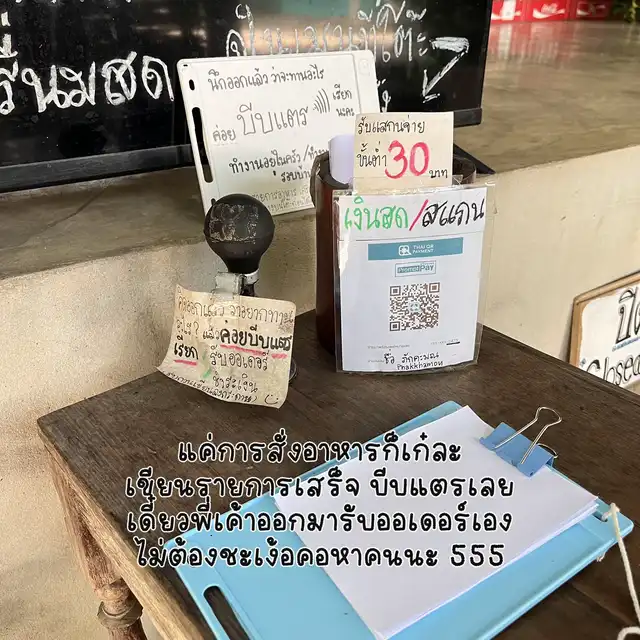 รื่นมสด
นึกออกแล้ว ว่าจะทานอะไร
ค่อย บีบแตร เรียก
นะคะ
ทำงานอยู่ในครัว
รับแสกนจ่าย
ขั้นต่ำ 30 บาท
เงินสด/สแกน
THAI QR
PAYMENT
PromptPay
ชื่อ ภักคะมณ
Phakkhamon
คิดออกแล้ว ว่าอยากทาน
แล้วค่อยบีบแตร
เรียก รับออเดอร์
ชำระเงิน
ปิด
Closed
แค่การสั่งอาหารก็เก๋ละ
เขียนรายการเสร็จ บีบแตรเลย
เดี๋ยวพี่เค้าออกมารับออเดอร์เอง
ไม่ต้องชะเง้อคอหาคนนะ 555